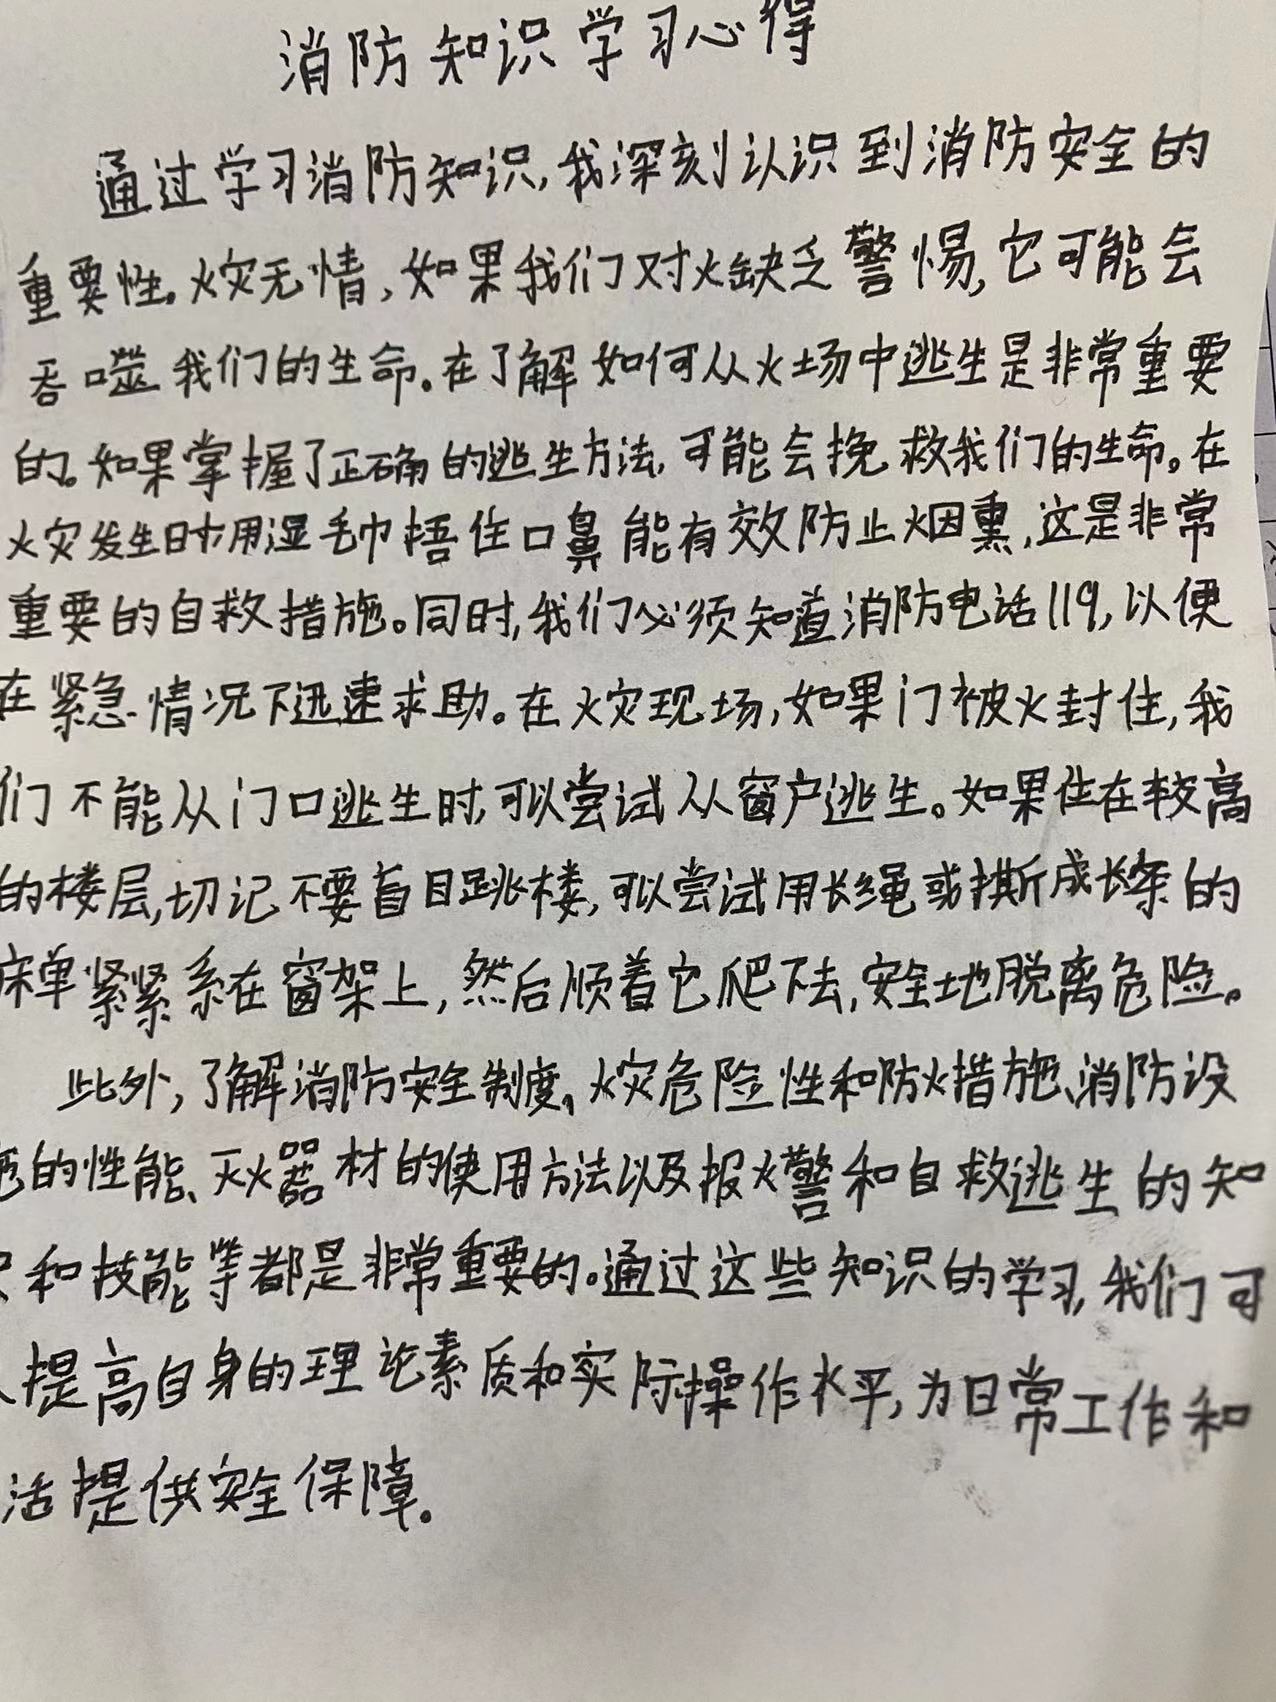 消防知识学习心得
通过学习消防知识,我深刻认识到消防安全的
重要性。火灾无情,如果我们对火缺乏警惕,它可能会
吞噬我们的生命。在了解如何从火场中逃生是非常重要
的。如果掌握了正确的逃生方法,可能会挽救我们的生命。在
火灾发生时用湿毛巾捂住口鼻能有效防止烟熏,这是非常
重要的自救措施。同时,我们必须知道消防电话119,以便
在紧急情况下迅速求助。在火灾现场,如果门被火封住,我
们不能从门口逃生时,可以尝试从窗户逃生。如果住在较高
的楼层,切记不要盲目跳楼,可以尝试用长绳或撕成长条的
床单紧紧系在窗架上,然后顺着它爬下去,安全地脱离危险。
此外,了解消防安全制度、火灾危险性和防火措施、消防设
施的性能、灭火器材的使用方法以及报火警和自救逃生的知
识和技能等都是非常重要的。通过这些知识的学习,我们可
提高自身的理论素质和实际操作水平,为日常工作和
活提供安全保障。